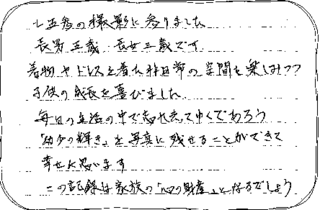 七五三の撮影に参りました
長男五歳 長女三歳です
着物やドレスを着た非日常の空間を楽しみつつ
子供の成長を喜びました
毎日の生活の中で忘れ去って中くであろう
"幼少の輝き"を写真に残せることができて
幸せに思います
この記録は家族の「心の財産」と作るでしょう